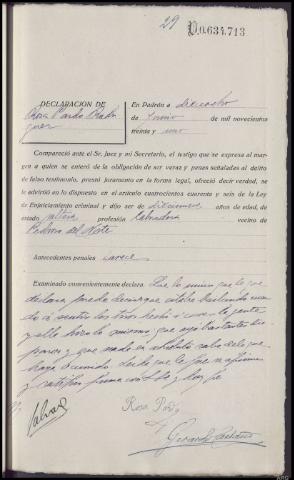 29
D0.634.713
DECLARACION DE
Rosa Pardo
En Padrón a dieciocho
de Junio de mil novecientos
treinta y uno
Compareció ante el Sr. Juez y mi Secretario, el testigo que se expresa al mar-
gen a quien se enteró de la obligación de ser veraz y penas señaladas al delito
de falso testimonio, prestó juramento en la forma legal, ofreció decir verdad, se
le advirtió en lo dispuesto en el artículo cuatrocientos cuarenta y seis de la Ley
de Enjuiciamiento criminal y dijo ser de diecinueve años de edad, de
estado soltera profesión labradora vecino de
Antecedentes penales carece
Examinado convenientemente declara. Que lo único que
declara puede decir que estaba bailando cuan-
do sí sentir los tiros hechos la gente
y ella hizo lo mismo, que oyó bastantes dis-
paros y que nada en absoluto sabe de lo que
haya ocurrido. Leída que le fue se afirma
y ratifica firma con S.S. y doy fe
Rosa Pardo
Gerardo